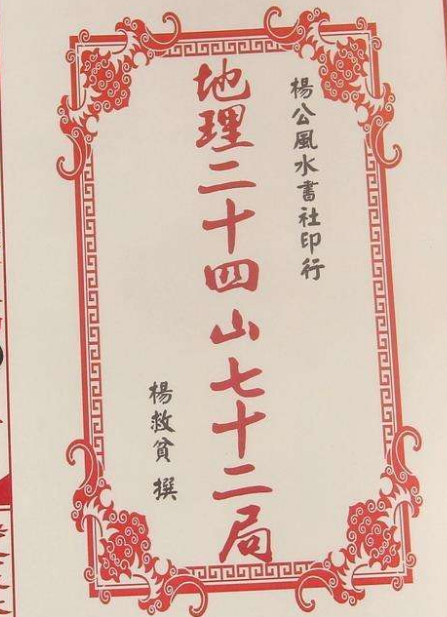 楊公風水書社印行
地理二十四山七十二局
楊救貧 撰